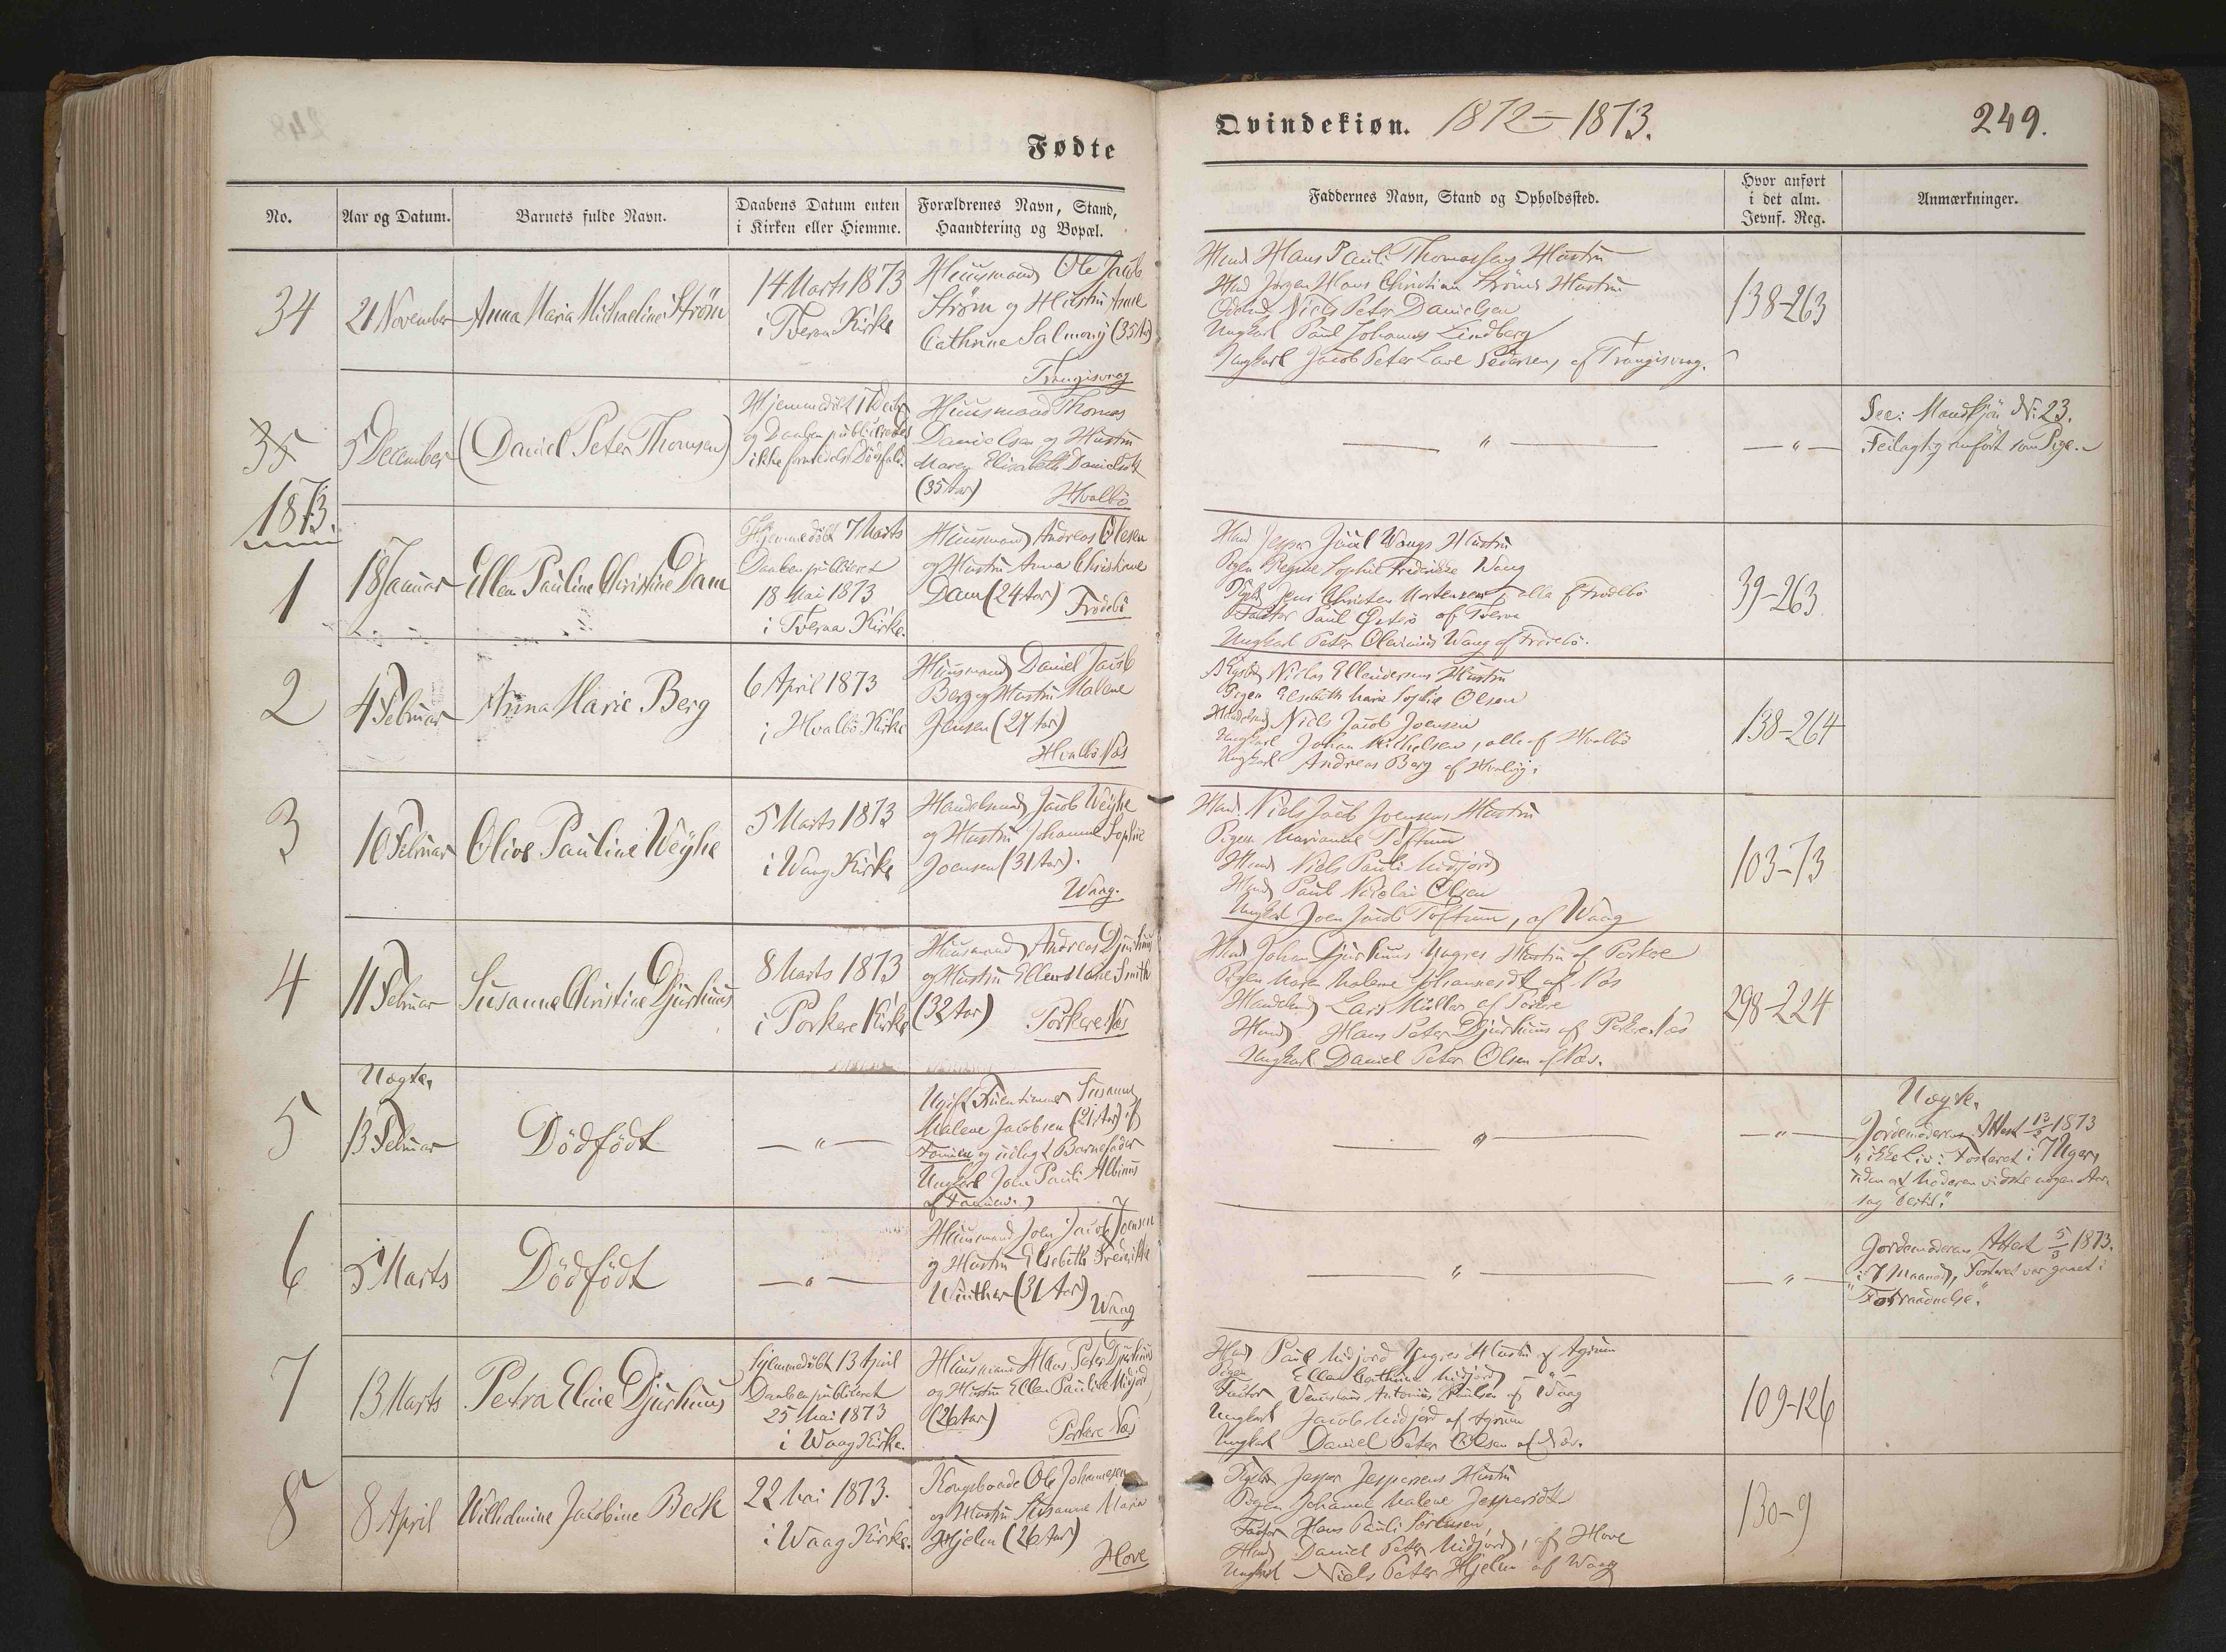 Fødte
Qvindekiøn. 1872 – 1873.
249.
No.
Aar og Datum.
Barnets fulde Navn.
Daabens Datum enten
i Kirken eller Hiemme.
Forældrenes Navn, Stand,
Haandtering og Bopæl.
Faddernes Navn, Stand og Opholdssted.
Hvor anført
i det alm.
Jevnf. Reg.
Anmærkninger.
34
21 November
Anna Maria Michaeline Strøm
14 Marts 1873
i Tveraa Kirke
Huusmand Ole Jacob
Strøm og Hustru Anne
Cathrine Salmonj (35 Aar)
Trangisvaag
Hmd Hans Pauli Thomassens Hustru
Hmd Jørgen Hans Christian Strøms Hustru
Niels Peter Danielsen
Ungkarl Paul Johannes Lindberg
Ungkarl Jacob Peter Lave Pedersen, af Trangisvaag.
138-263
35
5 December
(Daniel Peter Thomsen)
Hjemmedøbt 17 Decbr
og Daaben publiceredes
ikke formedelst Dødsfald.
Huusmand Thomas
Danielsen og Hustru
Maren Elisabeth Danielsdt
(35 Aar)
Hvalbö
— " —
— " —
See: Mandkjön No: 23.
Feilagtig anført som Pige.
1873.
1
18 Januar
Ellen Pauline Christine Dam
Hjemmedöbt 7 Marts
Daaben publiceret
18 Mai 1873
i Tveraa Kirke.
Huusmand Andreas Olesen
og Hustru Anna Christine
Dam (24 Aar) Frodebö
Hmd Jesper Juul Wangs Hustru
Pigen Regine Sophie Frederikke Wang
Jens Christen Mortensen, alle af Frodebö
Factor Paul Østerø af Tveraa
Ungkarl Peter Olavius Wang af Frodebö.
39-263
2
4 Februar
Anna Marie Berg
6 April 1873
i Hvalbö Kirke
Huusmand Daniel Jacob
Berg og Hustru Malene
Jensen (27 Aar)
Hvalbö Næs
Niclas Ellendersens Hustru
Pigen Elsebeth Maria Sophie Olsen
Handelsmd Niels Jacob Joensen
Ungkarl Johan Michelsen, alle af Hvalbö
Ungkarl Andreas Berg af
138-264
3
10 Februar
Olive Pauline Weyhe
5 Marts 1873
i Waag Kirke
Handelsmand Jacob Weyhe
og Hustru Johanne Sophie
Joensen (31 Aar).
Waag.
Hmd. Niels Jacob Joensens Hustru
Pigen Marianne Toftum
Hmd Niels Pauli Midjord
Hmd Paul Nicolai Olsen
Ungkarl Joen Jacob Toftum, af Waag
103-73
4
11 Februar
Susanne Christine Djurhuus
8 Marts 1873
i Porkere Kirke
Huusmand Andreas Djurhuus
og Hustru Ellen Smith
(32 Aar) Porkere Næs
Hmd Johan Djurhuus Yngres Hustru af Porkere
Pigen Maren Malene Johannesdt af Næs
Handelsmd Lars Müller af Porkere
Hmd Hans Peter Djurhuus af Porkere Næs
Ungkarl Daniel Peter Olsen af Næs.
298-224
5
Uægte,
13 Februar
Dödfödt
— " —
Ugift Fruentimmer Susanne
Malene Jacobsen (21 Aar) af
Famien og udlagt Barnefader
Ungkarl Joen Pauli Albinus
af Famien.
— " —
— " —
Uægte.
Jordemoderens Attest 13/2 1873
"ikke Liv i Fosteret i 7 Uger,
uden at Moderen vidste nogen Aar-
sag dertil."
6
5 Marts
Dödfödt
— " —
Huusmand Joen Jacob Joensen
og Hustru Elsebeth Frederikke
Winther (31 Aar)
Waag
— " —
— " —
Jordemoderens Attest 5/3 1873.
"i 7 Maaned, Fosteret var gaaet i
Forraadnelse."
7
13 Marts
Petra Eline Djurhuus
Hjemmedöbt 13 April
Daaben publiceret
25 Mai 1873
i Waag Kirke.
Huusmand Hans Peter Djurhuus
og Hustru Ellen Pauline Midjord
(26 Aar)
Porkere Næs
Hmd Paul Midjord Yngres Hustru af Agrum
Pigen Ellen Cathrine Midjord — " —
Factor Venslaus Antonius Poulsen af Waag
Ungkarl Jacob Midjord af Agrum
Ungkarl Daniel Peter Olsen af Næs.
109-126
8
8 April
Wilhelmine Jacobine Beck
22 Mai 1873.
i Waag Kirke.
Kongsbonde Ole Johannesen
og Hustru Susanne Maria
Hjelm (26 Aar)
Hove
Jesper Jespersens Hustru
Pigen Johanne Malene Jespersdt
Factor Hans Pauli Sörensen,
Hmd Daniel Peter Midjord, af Hove
Ungkarl Niels Peter Hjelm af Waag
130-9